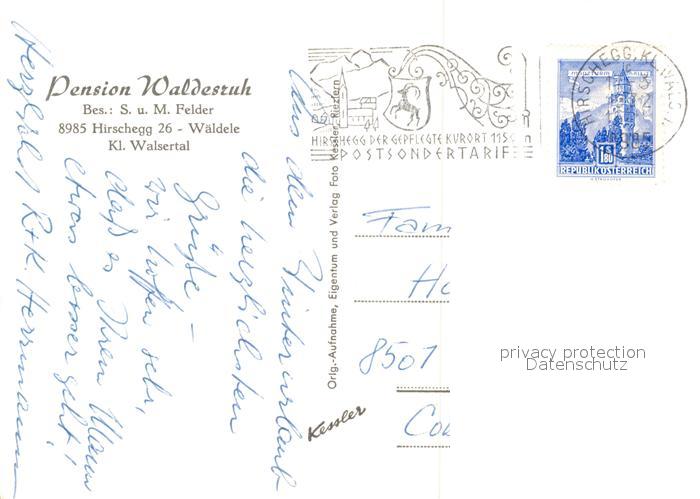 Pension Waldesruh
Bes.: S. u. M. Felder
8985 Hirschegg 26 - Wäldele
Kl. Walsertal
Aus dem Winterurlaub
die herzlichsten
Grüße –
wir hoffen sehr,
daß es Ihrem Mann
etwas besser geht!
Herzlichst R+K. Herrmann
Orig.-Aufnahme, Eigentum und Verlag Foto Kessler, Riezlern
Kessler
HIRSCHEGG DER GEPFLEGTE KURORT 1125 m
POSTSONDERTARIF
HIRSCHEGG, KL. WALS
8985
1.80
REPUBLIK ÖSTERREICH
Fam
8501
privacy protection
Datenschutz